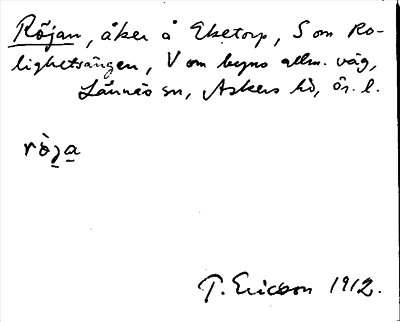 Röjan, åker å Eketorp, S om Ro-
lighetsängen, V om byns allm. väg,
Lännäs sn, Askers hd, ör. l.
rò̱ʒa̱
T. Ericsson 1912.